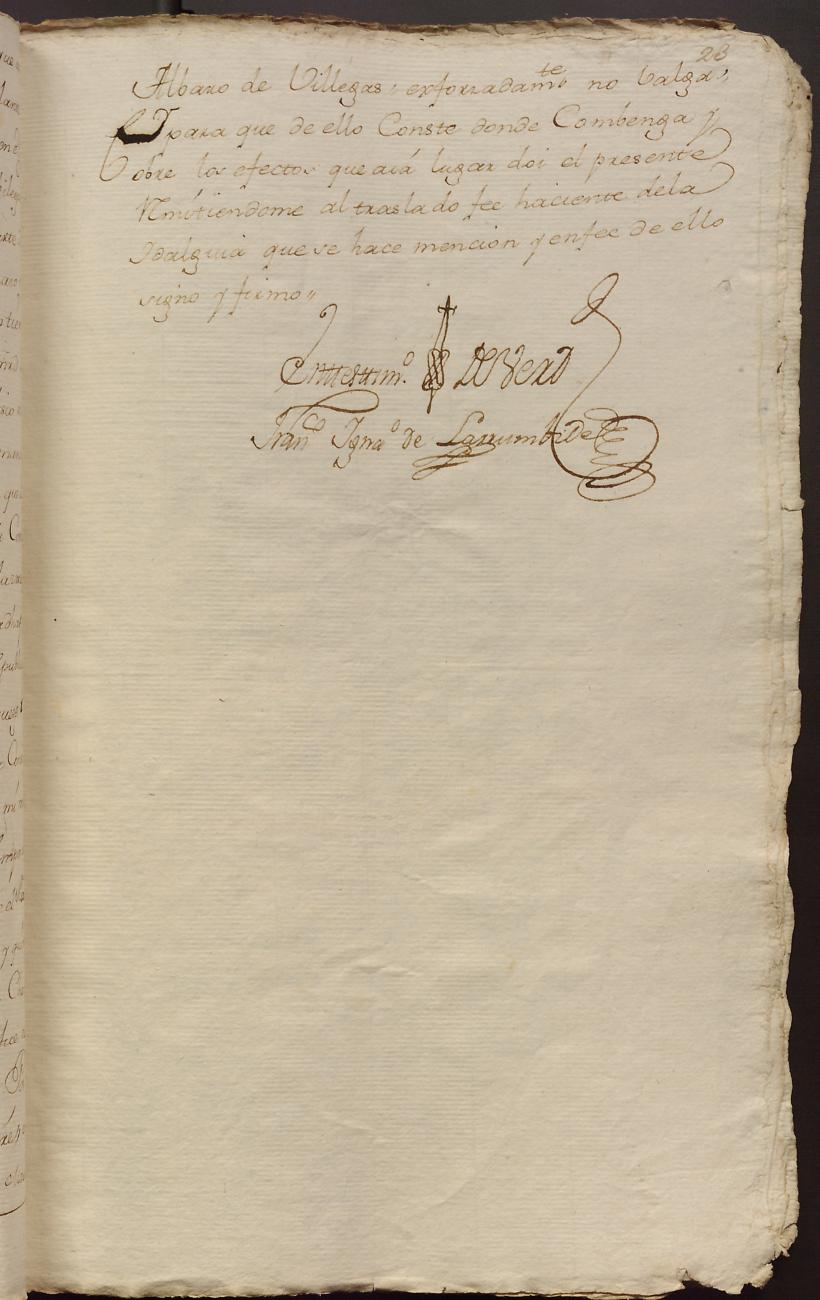 23
Albaro de Villegas, exforzadamte no balga,,
Y para que de ello Conste donde Combenga y
obre los efectos que aiá lugar doi el presente
Rmitiendome al traslado fee haciente dela
Idalguia que se hace mencion y enfee de ello
signo y firmo,,
En testimo. de Verd
Franco Ignao de Larrumbide